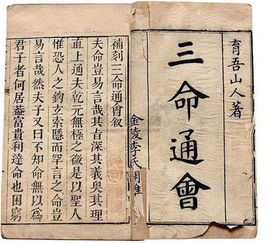 育吾山人著
三命通會
金陵李氏
補刻三命通會叙
夫命豈易言哉其旨深其義奧其理
直上通夫乾元無極之後是以聖人
惟恐人之鉤玄索隱而罕言之命豈
易言哉然夫子又曰不知命無以爲
君子者何居蓋富貴利達命也困窮